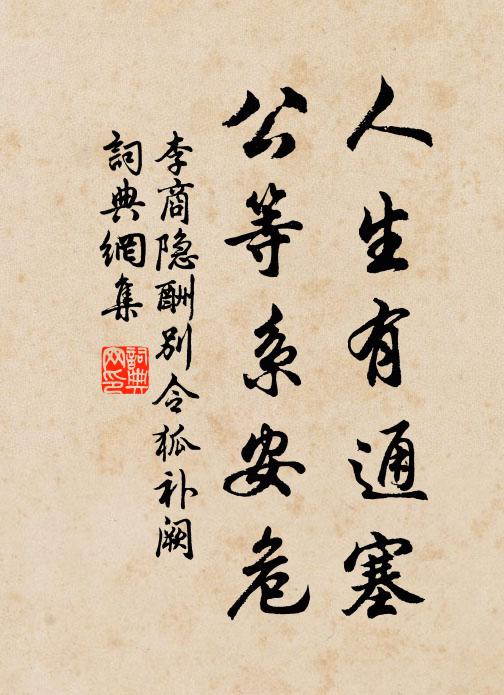 人生有通塞
公等系安危
李商隐酬别令狐补阙
詞典網集
詞典
网印